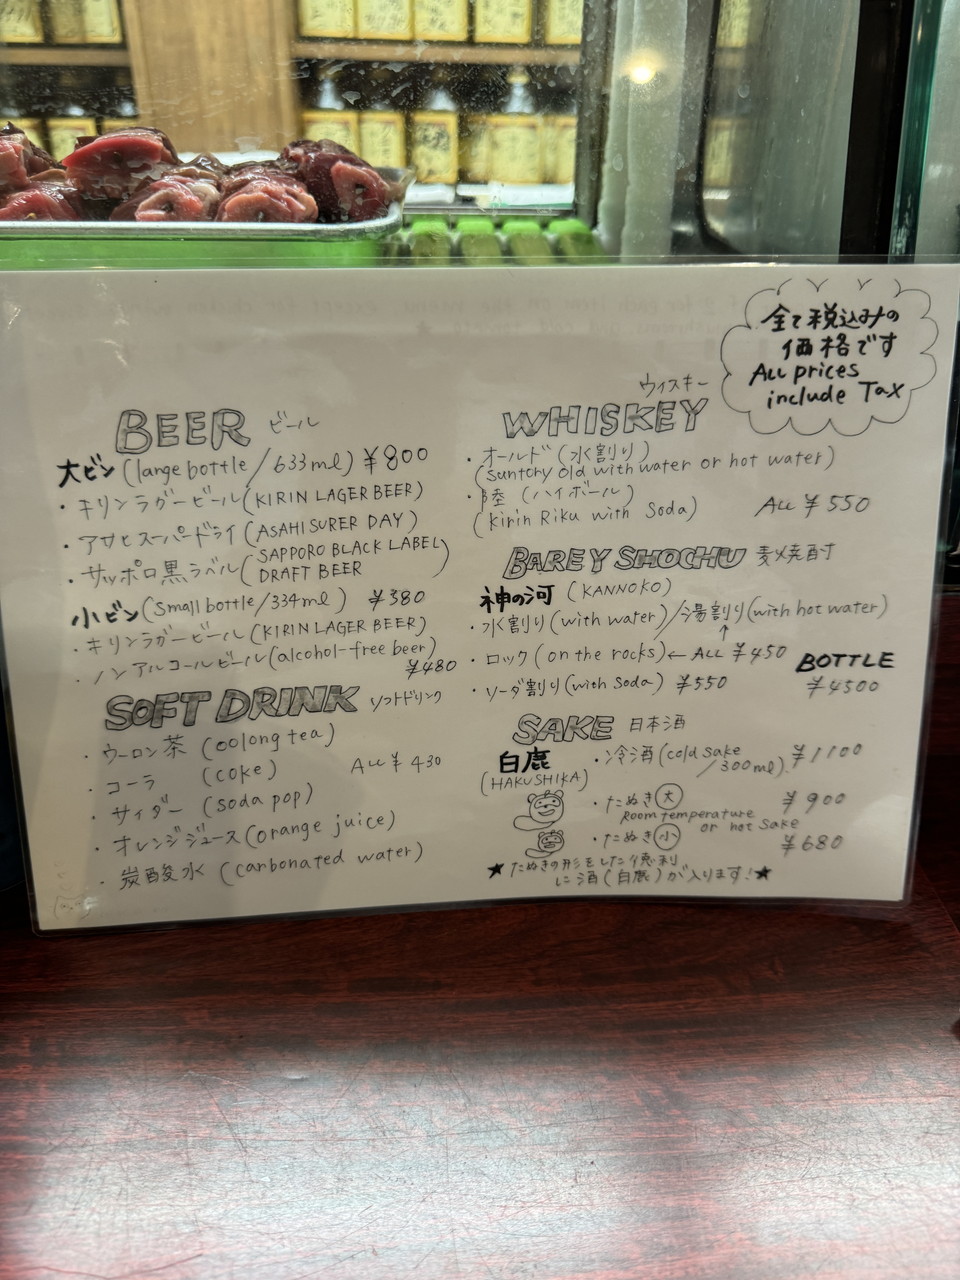 全て税込みの
価格です
All prices
include Tax
BEER ビール
大ビン(large bottle/633ml) ¥800
・キリンラガービール(KIRIN LAGER BEER)
・アサヒスーパードライ(ASAHI SURER DAY)
・サッポロ黒ラベル(SAPPORO BLACK LABEL
DRAFT BEER)
小ビン(small bottle/334ml) ¥380
・キリンラガービール(KIRIN LAGER BEER)
・ノンアルコールビール(alcohol-free beer)
¥480
SOFT DRINK ソフトドリンク
・ウーロン茶 (oolong tea)
・コーラ (coke) All ¥430
・サイダー (soda pop)
・オレンジジュース(orange juice)
・炭酸水 (carbonated water)
ウィスキー
WHISKEY
・オールド(水割り)
(suntory old with water or hot water)
・陸 (ハイボール)
(kirin Riku with Soda) All ¥550
BAREY SHOCHU 麦焼酎
神の河 (KANNOKO)
・水割り(with water)/湯割り(with hot water)
・ロック(on the rocks)← ALL ¥450
BOTTLE
・ソーダ割り(with Soda) ¥550
¥4500
SAKE 日本酒
白鹿
(HAKUSHIKA)
・冷酒(cold sake
/300ml) ¥1100
・たぬき大 ¥900
Room temperature
or hot sake
・たぬき小 ¥680
★たぬきの形をした徳利
に酒(白鹿)が入ります!★